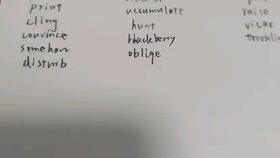 print
cling
convince
somehow
disturb
accumulate
hunt
blackberry
oblige
raise
vicar